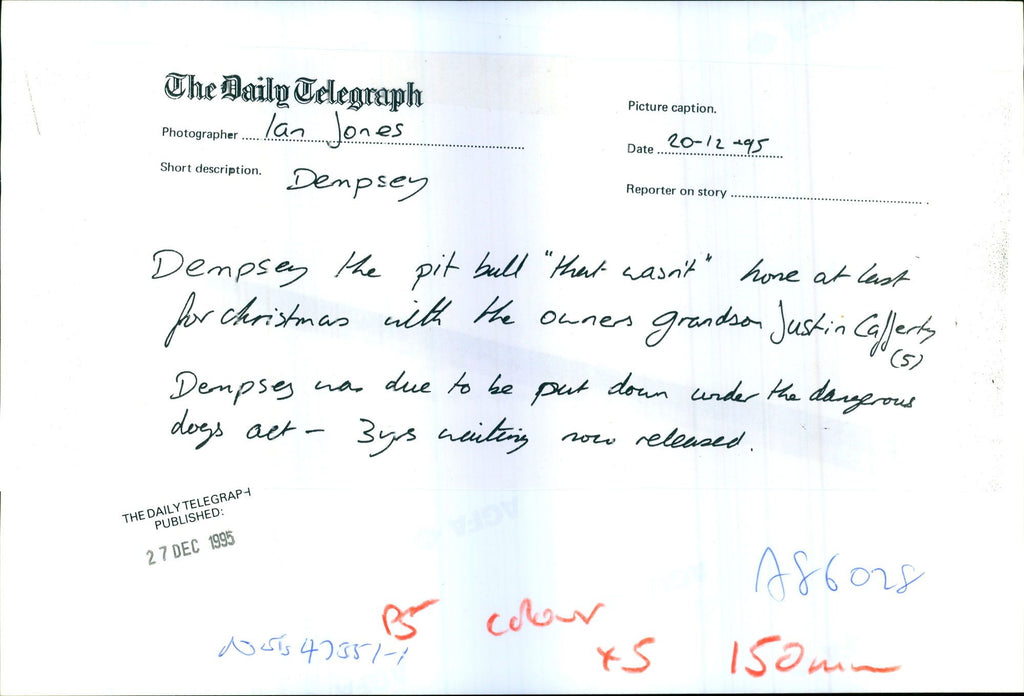 The Daily Telegraph
Photographer Ian Jones
Short description. Dempsey
Picture caption.
Date 20-12-95
Reporter on story
Dempsey the pit bull "that wasn't" home at last
for christmas with the owners grandson Justin Cafferty
(5)
Dempsey was due to be put down under the dangerous
dogs act - 3yrs waiting now released.
THE DAILY TELEGRAPH
PUBLISHED:
27 DEC 1995
A86028
P5 colour
x5 150mm
AGFA